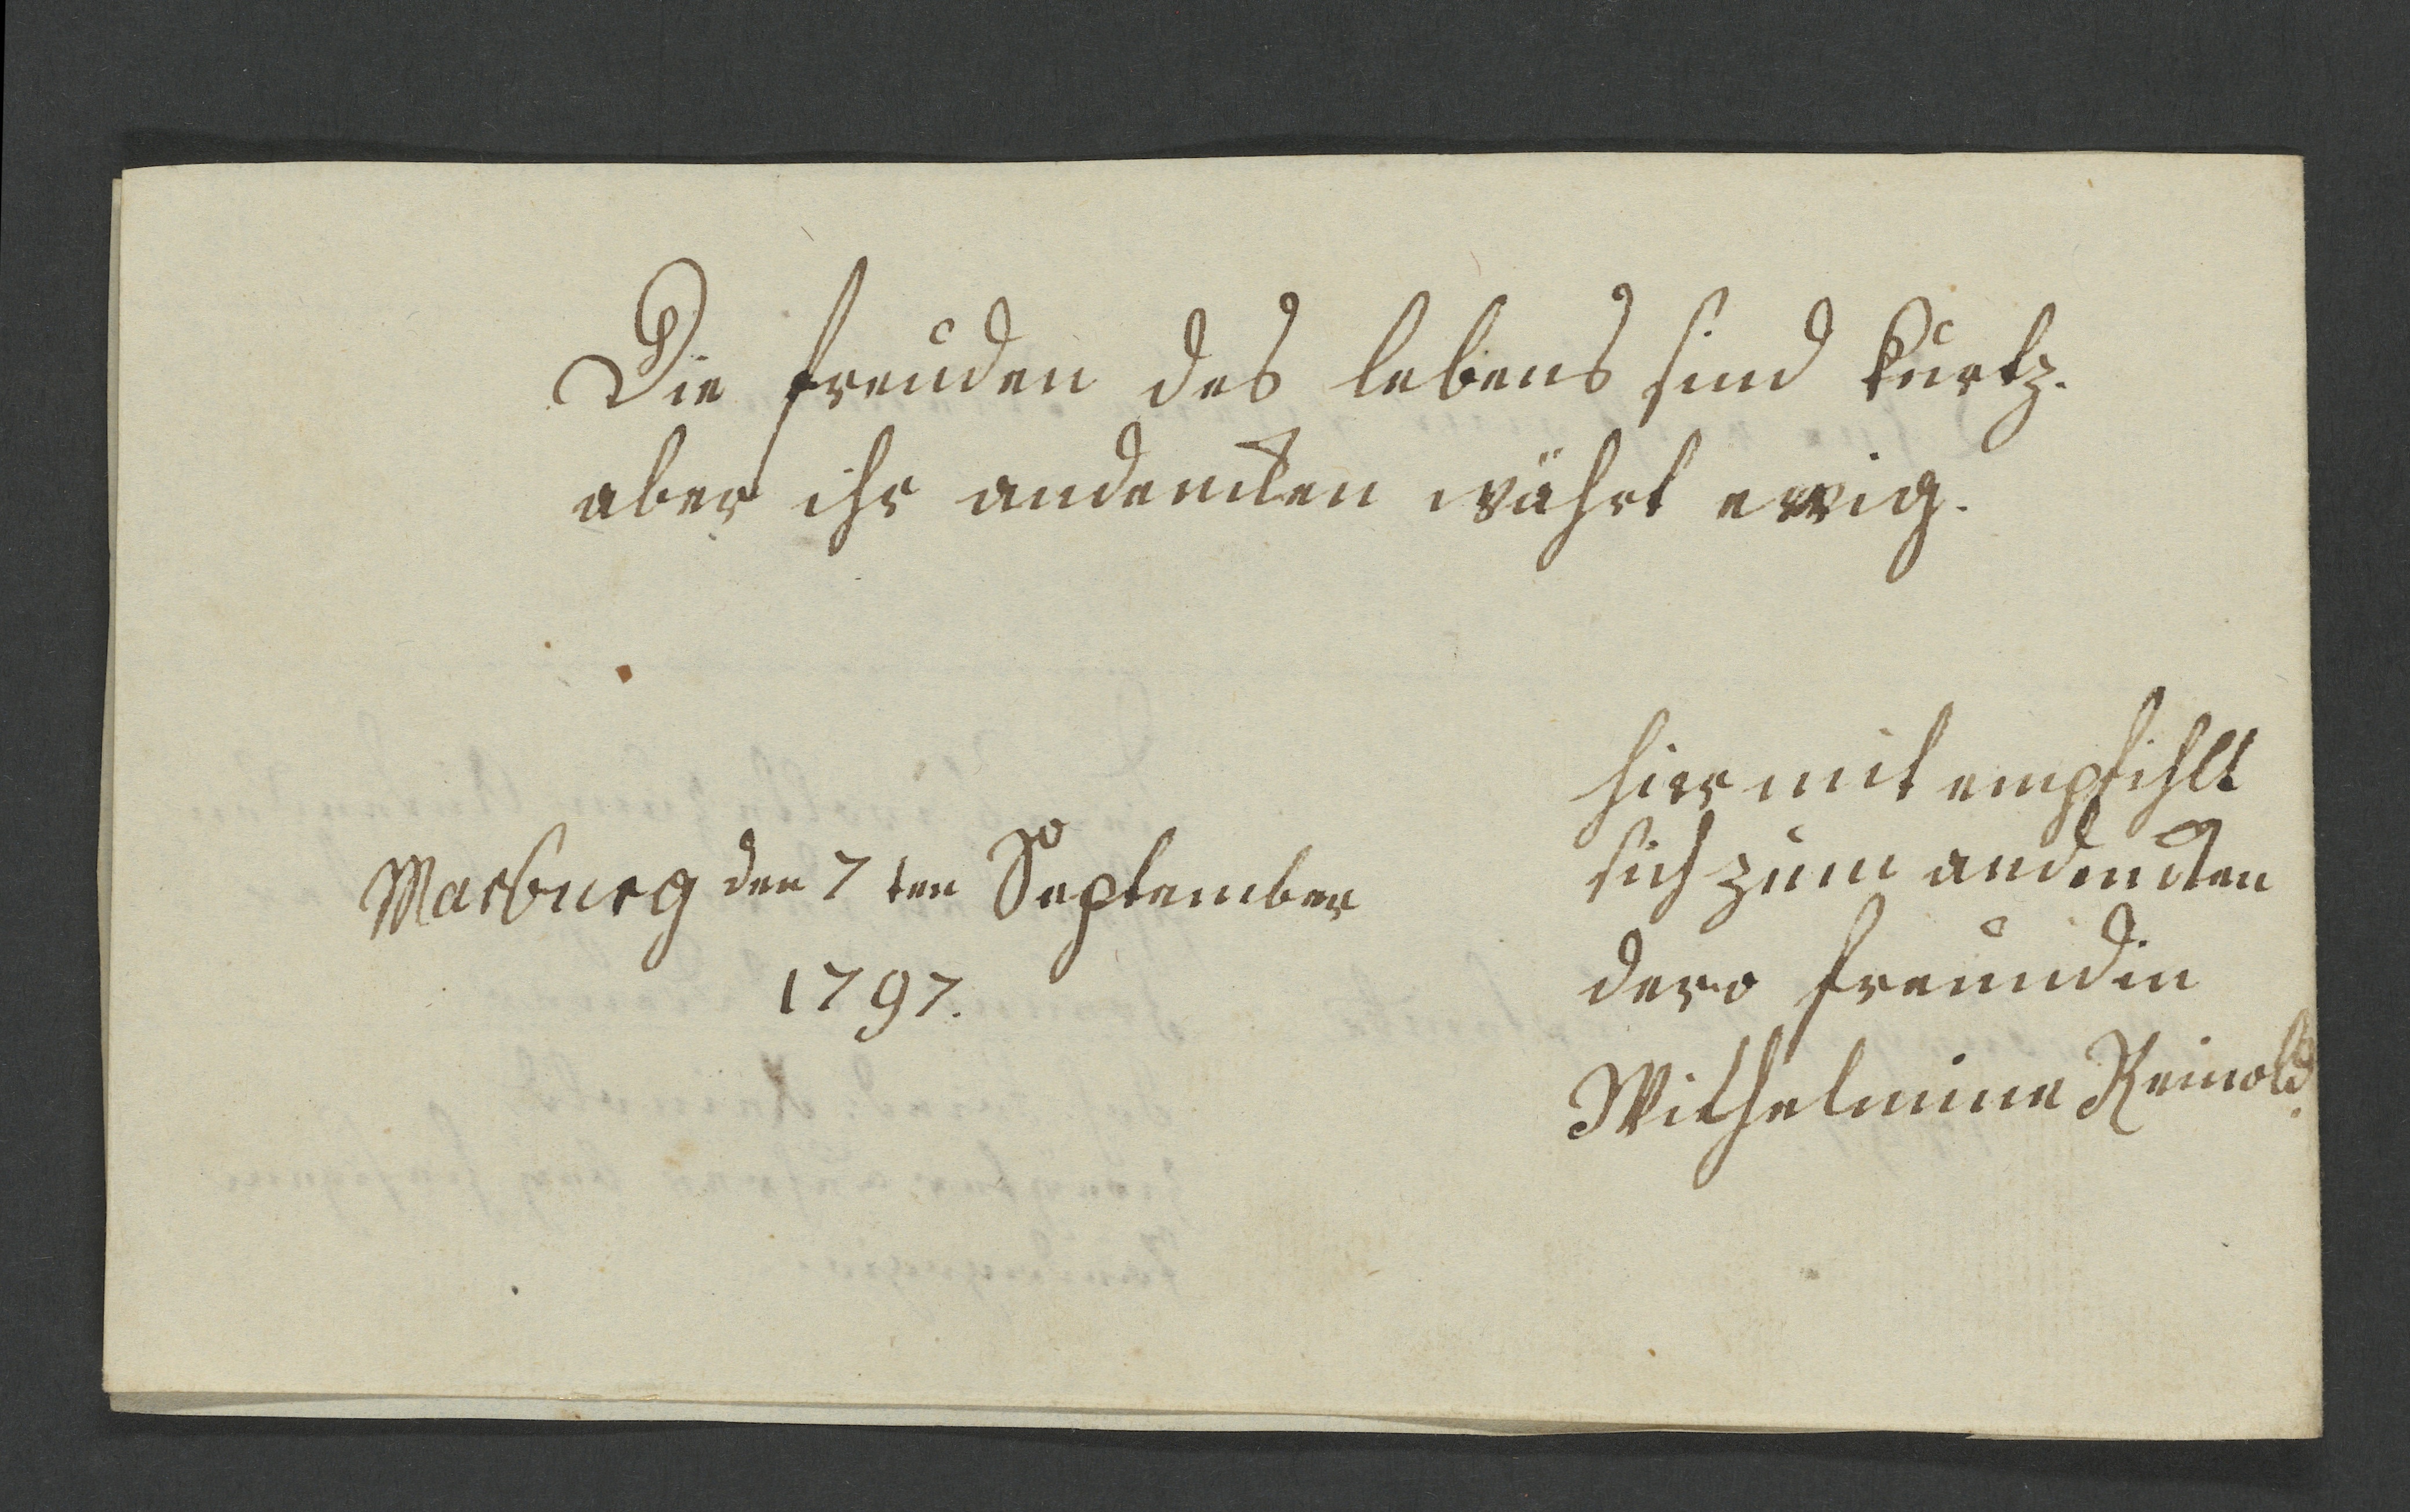 Die freuden des lebens sind kurtz.
aber ihr andencken währt ewig.
Marburg den 7ten September
1797.
hier mit empfihlt
sich zum andencken
dero freundin
Wilhelmine Reinold